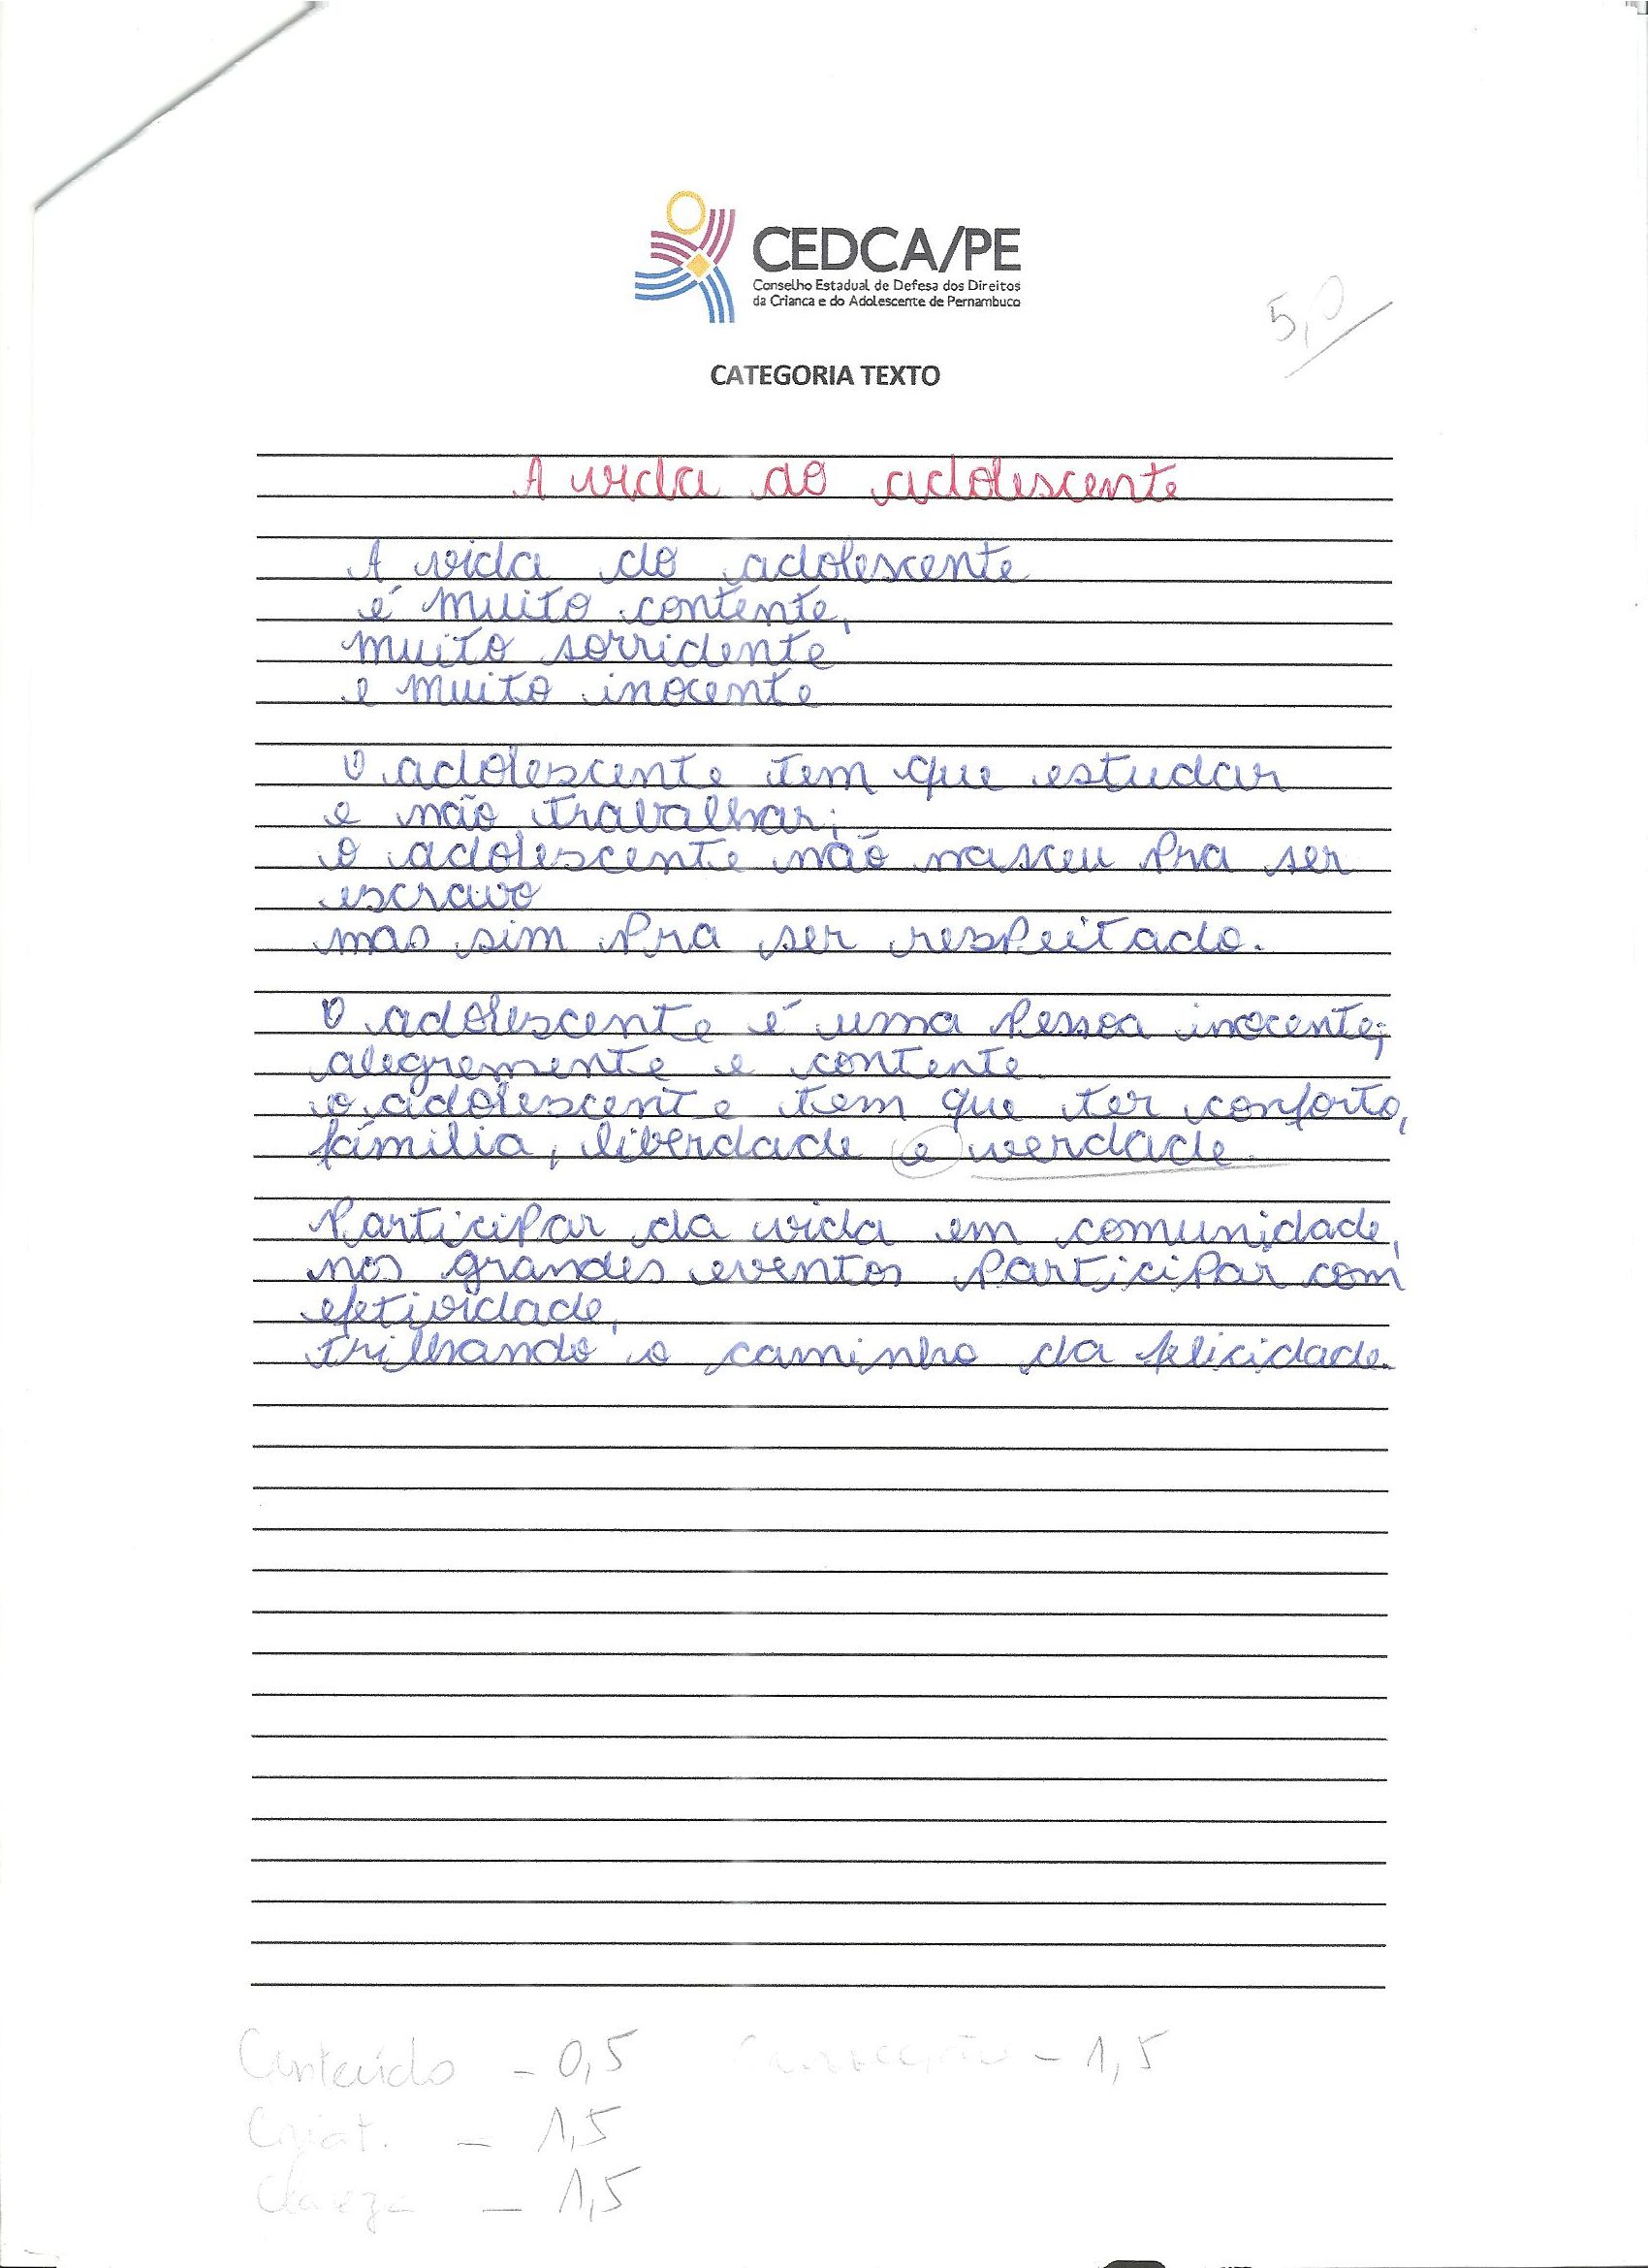 CEDCA/PE
Conselho Estadual de Defesa dos Direitos
da Crianca e do Adolescente de Pernambuco
5,0
CATEGORIA TEXTO
A vida do adolescente
A vida do adolescente
é muito contente,
muito sorridente
e muito inocente
O adolescente tem que estudar
e não trabalhar;
o adolescente não nasceu pra ser
escravo
mas sim pra ser respeitado.
O adolescente é uma pessoa inocente;
alegremente e contente.
o adolescente tem que ter conforto,
família, liberdade e verdade.
Participar da vida em comunidade,
nos grandes eventos participar com
efetividade,
trilhando o caminho da felicidade.
Conteúdo - 0,5 - 1,5
Criat. - 1,5
Clareza - 1,5